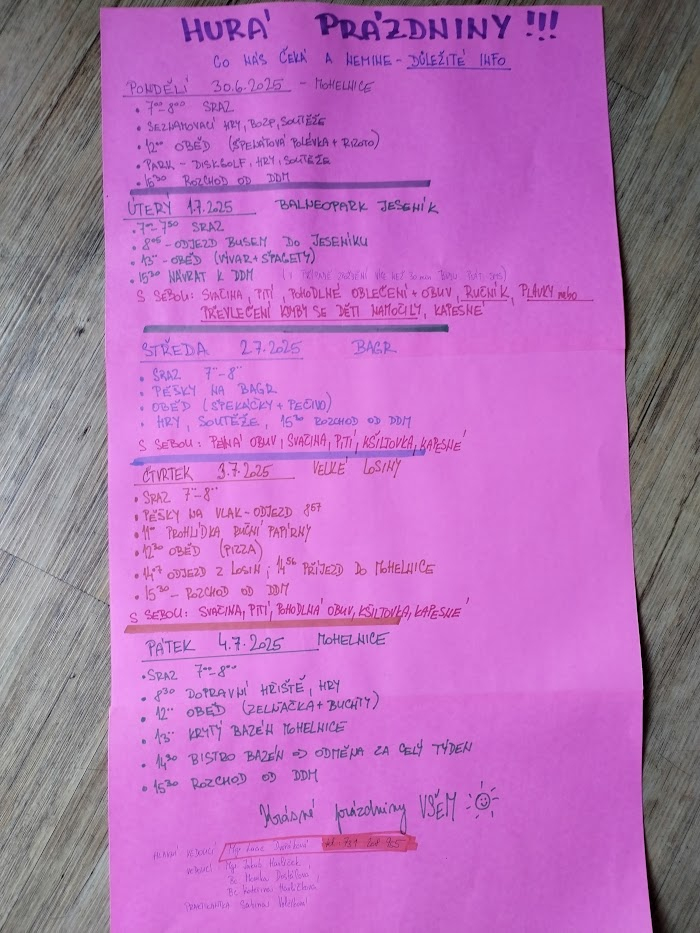 HURÁ PRÁZDNINY!!!
CO NÁS ČEKÁ A NEMINE - DŮLEŽITÉ INFO
PONDĚLÍ 30.6.2025 - MOHELNICE
• 7⁰⁰-8⁰⁰ SRAZ
• SEZNAMOVACÍ HRY, BOZP, SOUTĚŽE
• 12⁰⁰ OBĚD (ŠPENÁTOVÁ POLÉVKA + RIZOTO)
• PARK - DISKGOLF, HRY, SOUTĚŽE
• 15³⁰ ROZCHOD OD DDM
ÚTERÝ 1.7.2025 BALNEOPARK JESENÍK
• 7⁰⁰-7⁵⁰ SRAZ
• 8⁰⁵ - ODJEZD BUSEM DO JESENÍKU
• 13⁰⁰ - OBĚD (VÝVAR + ŠPAGETY)
• 15³⁰ NÁVRAT K DDM (V PŘÍPADĚ ZPOŽDĚNÍ VÍC NEŽ 30 min BUDU PSÁT SMS)
S SEBOU: SVAČINA, PITÍ, POHODLNÉ OBLEČENÍ + OBUV, RUČNÍK, PLAVKY nebo
PŘEVLEČENÍ KDYBY SE DĚTI NAMOČILY, KAPESNÉ
STŘEDA 2.7.2025 BAGR
• SRAZ 7⁰⁰-8⁰⁰
• PĚŠKY NA BAGR
• OBĚD (ŠPEKÁČKY + PEČIVO)
• HRY, SOUTĚŽE, 15³⁰ ROZCHOD OD DDM
S SEBOU: PEVNÁ OBUV, SVAČINA, PITÍ, KŠILTOVKA, KAPESNÉ
ČTVRTEK 3.7.2025 VELKÉ LOSINY
• SRAZ 7⁰⁰-8⁰⁰
• PĚŠKY NA VLAK - ODJEZD 8⁵⁷
• 11⁰⁰ PROHLÍDKA RUČNÍ PAPÍRNY
• 12³⁰ OBĚD (PIZZA)
• 14⁰⁷ ODJEZD Z LOSIN; 14⁵⁶ PŘÍJEZD DO MOHELNICE
• 15³⁰ - ROZCHOD OD DDM
S SEBOU: SVAČINA, PITÍ, POHODLNÁ OBUV, KŠILTOVKA, KAPESNÉ
PÁTEK 4.7.2025 MOHELNICE
• SRAZ 7⁰⁰-8⁰⁰
• 8³⁰ DOPRAVNÍ HŘIŠTĚ, HRY
• 12⁰⁰ OBĚD (ZELŇAČKA + BUCHTY)
• 13⁰⁰ KRYTÝ BAZÉN MOHELNICE
• 14³⁰ BISTRO BAZÉN OD ODMĚNA ZA CELÝ TÝDEN
• 15³⁰ ROZCHOD OD DDM
Krásné prázdniny VŠEM
HLAVNÍ VEDOUCÍ Mgr. Lucie
VEDOUCÍ Mgr. Jakub Havlíček,
Bc. Monika
Bc. Kateřina Havlíčková
PRAKTIKANTKA Sabina